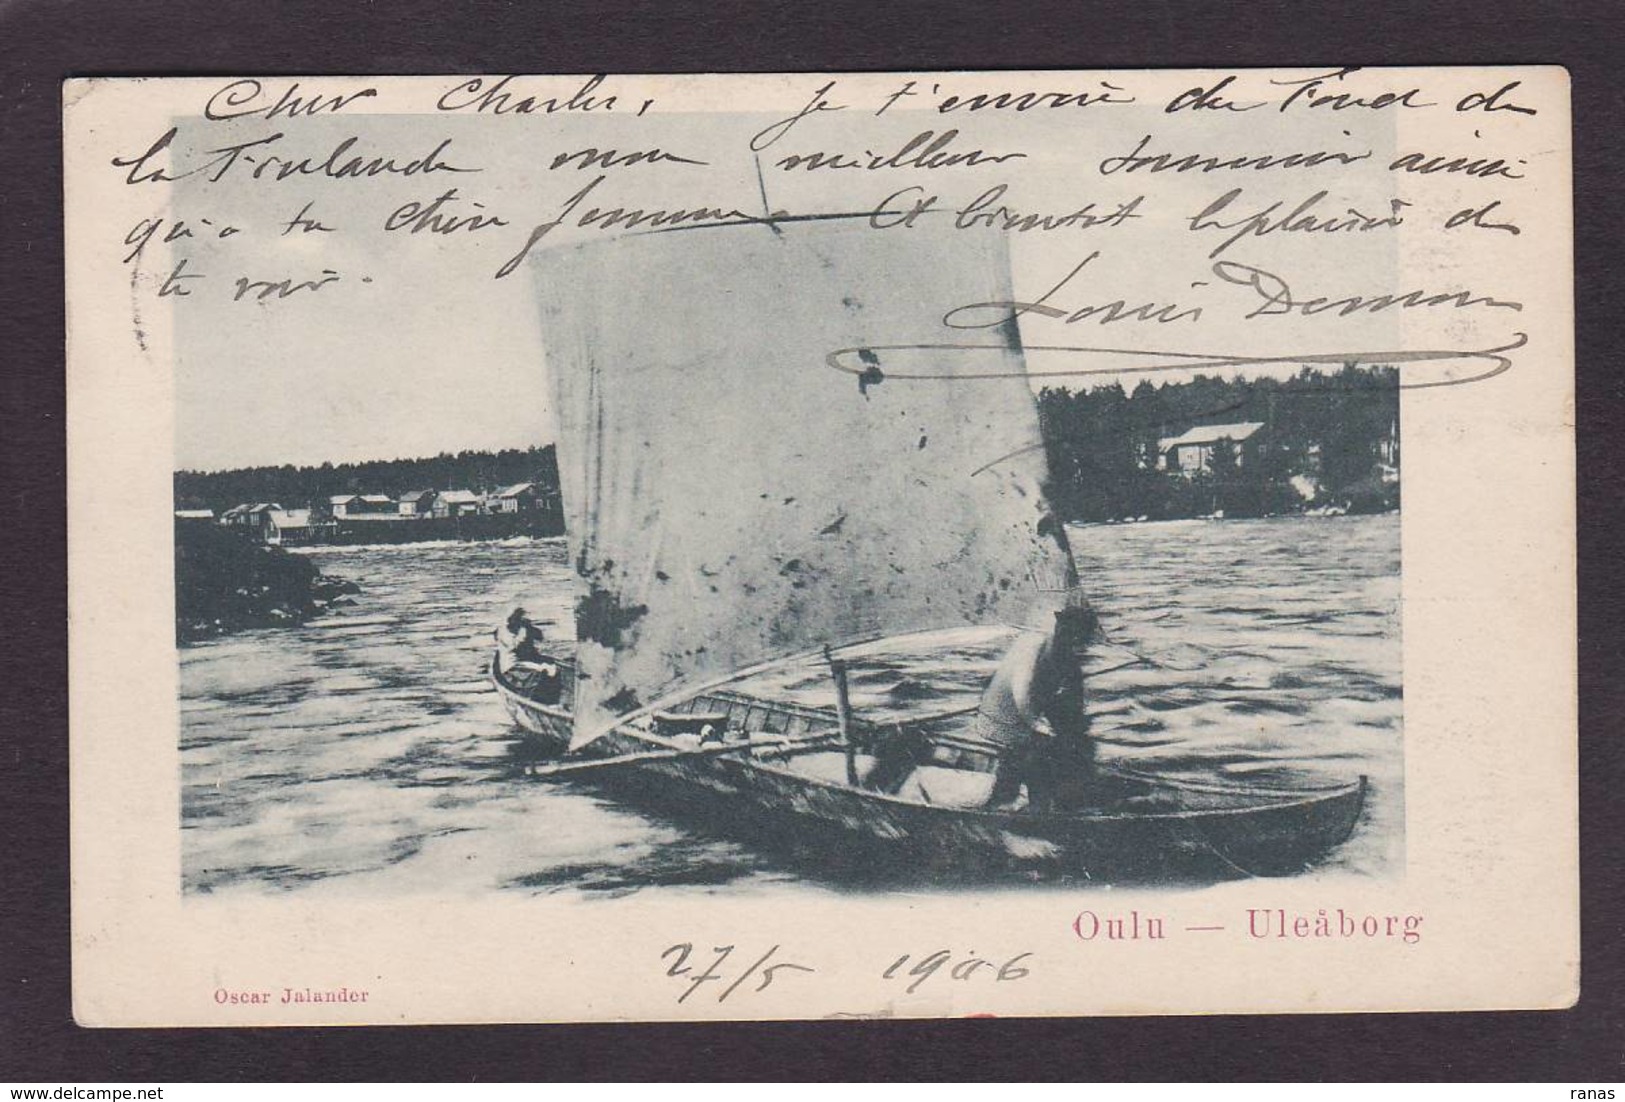 Cher Charles, je t'envoie du Fond de
la Finlande mon meilleur souvenir ainsi
qu'a ta chère femme. A bientôt le plaisir de
te voir.
Louis
Oulu — Uleåborg
27/5 1906
Oscar Jalander
ranas
delcampe.net